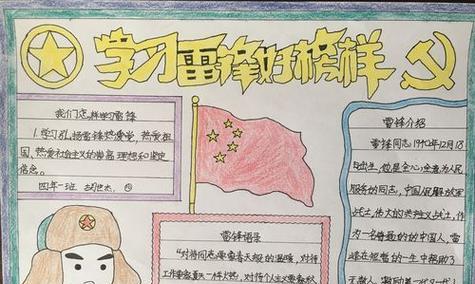 学习雷锋好榜样
我们怎样学习雷锋
1.学习弘扬雷锋热爱党，热爱祖
国，热爱社会主义的崇高理想和坚定
信念。
四年一班
雷锋语录
"对待同志要像春天般的温暖，对待
工作要像夏天一样火热，对待个人主义要像秋
雷锋介绍
雷锋同志1940年12月18
日出生，他是全心全意为人民
服务的同志，中国人民解放军
战士，伟大的共产主义战士，作
为一名普通的中国人，雷
锋在短暂的一生中帮助了
无数人